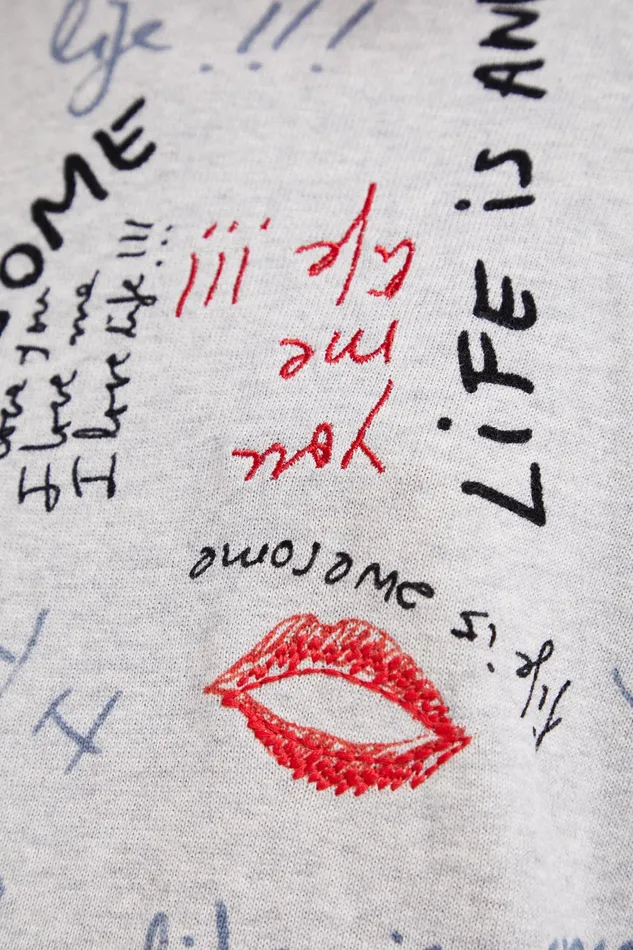 life !!!
OME
I love you
I love me
I love life !!!
you
me
life !!!
LiFE iS AN
life is awesome
I
life is